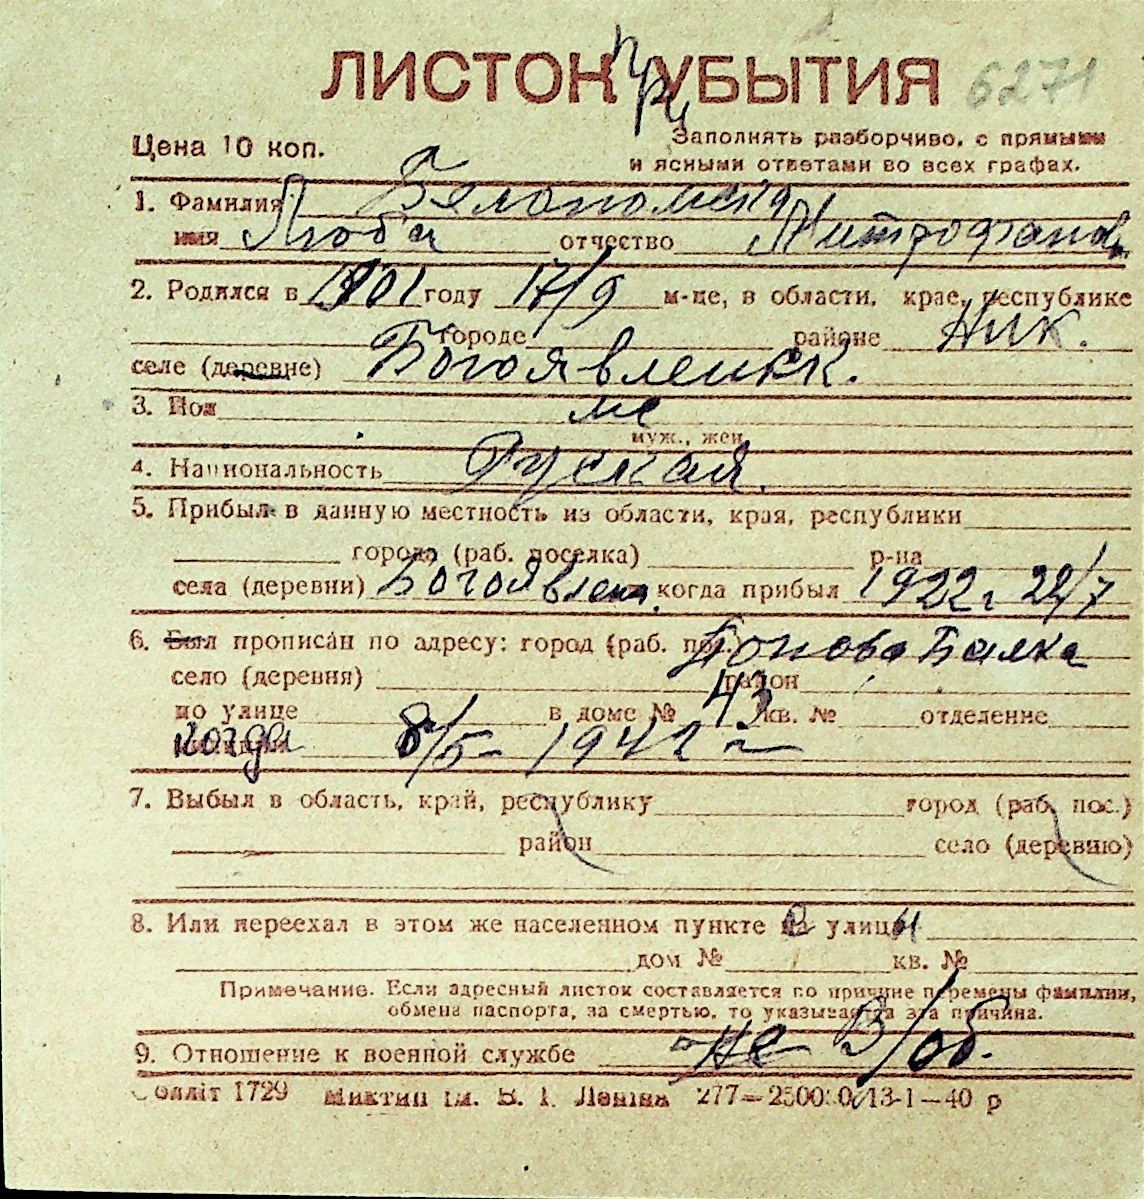 ЛИСТОК УБЫТИЯ 6271
Цена 10 коп.
Заполнять разборчиво, с прямыми
и ясными ответами во всех графах.
1. Фамилия
имя Люба отчество Митрофанов
2. Родился в 1901 году 17/9 м-це, в области, крае, республике
городе районе Ник.
селе (деревне) Богоявленск.
3. Пол
муж., жен.
4. Национальность Руская.
5. Прибыл в данную местность из области, края, республики
города (раб. поселка) р-на
села (деревни) Богоявлен. когда прибыл 1922 г 22/7
6. Был прописан по адресу: город (раб. пос.) Попова Балка
село (деревня) район
по улице в доме № 43 кв. № отделение
когда 8/5- 1942 г
7. Выбыл в область, край, республику город (раб. пос.)
район село (деревню)
8. Или переехал в этом же населенном пункте улицы
дом № кв. №
Примечание. Если адресный листок составляется по причине перемены фамилии,
обмена паспорта, за смертью, то указывается эта причина.
9. Отношение к военной службе не в/об.
1729 Миктип ім. В. І. Леніна 13-1—40 р